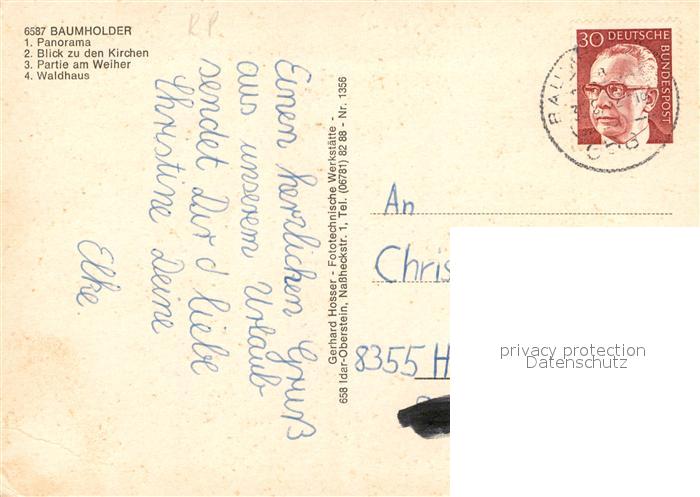 6587 BAUMHOLDER
1. Panorama
2. Blick zu den Kirchen
3. Partie am Weiher
4. Waldhaus
RP
Einen herzlichen Gruß
aus unserem Urlaub
sendet Dir d liebe
Christine Deine
Elke.
Gerhard Hosser - Fototechnische Werkstätte -
658 Idar-Oberstein, Naßheckstr. 1, Tel. (06781) 82 88 - Nr. 1356
30 DEUTSCHE
BUNDESPOST
An
Chris
8355 H
privacy protection
Datenschutz